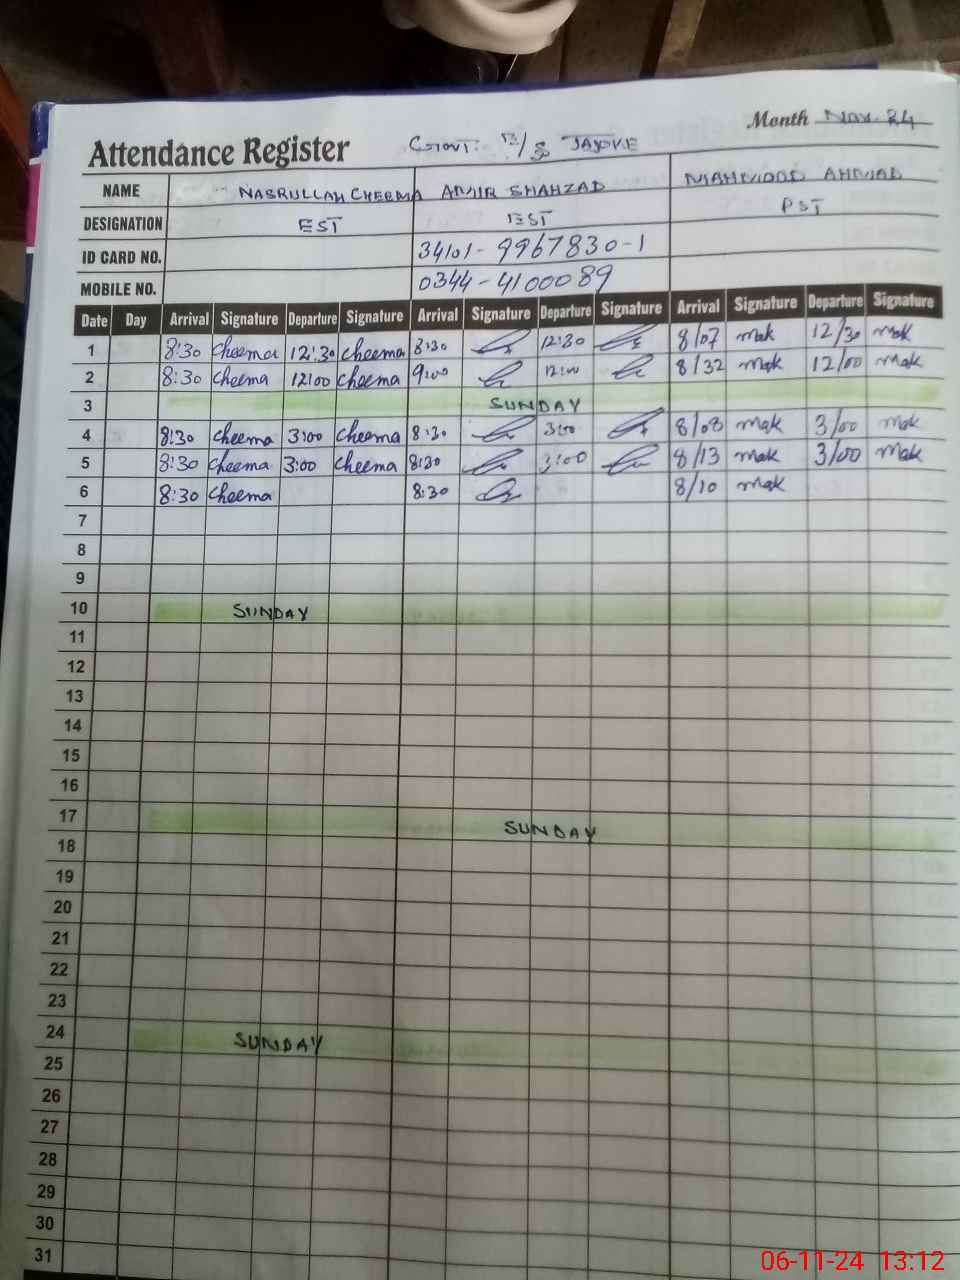 Month Nov. 24
Attendance Register GOVT: E/S JAJOKE
NAME NASRULLAH CHEEMA AMIR SHAHZAD MAHMOOD AHMAD
DESIGNATION EST EST PST
ID CARD NO. 34101-9967830-1
MOBILE NO. 0344-4100089
Date Day Arrival Signature Departure Signature Arrival Signature Departure Signature Arrival Signature Departure Signature
1 8:30 Cheema 12:30 Cheema 8:30 12:30 8/07 mak 12/30 mak
2 8:30 Cheema 12:00 Cheema 9:00 12:00 8/32 mak 12/00 mak
3 SUNDAY
4 8:30 Cheema 3:00 Cheema 8:30 3:00 8/08 mak 3/00 mak
5 8:30 Cheema 3:00 Cheema 8:30 3:00 8/13 mak 3/00 mak
6 8:30 Cheema 8:30 8/10 mak
7
8
9
10 SUNDAY
11
12
13
14
15
16
17 SUNDAY
18
19
20
21
22
23
24 SUNDAY
25
26
27
28
29
30
31
06-11-24 13:12